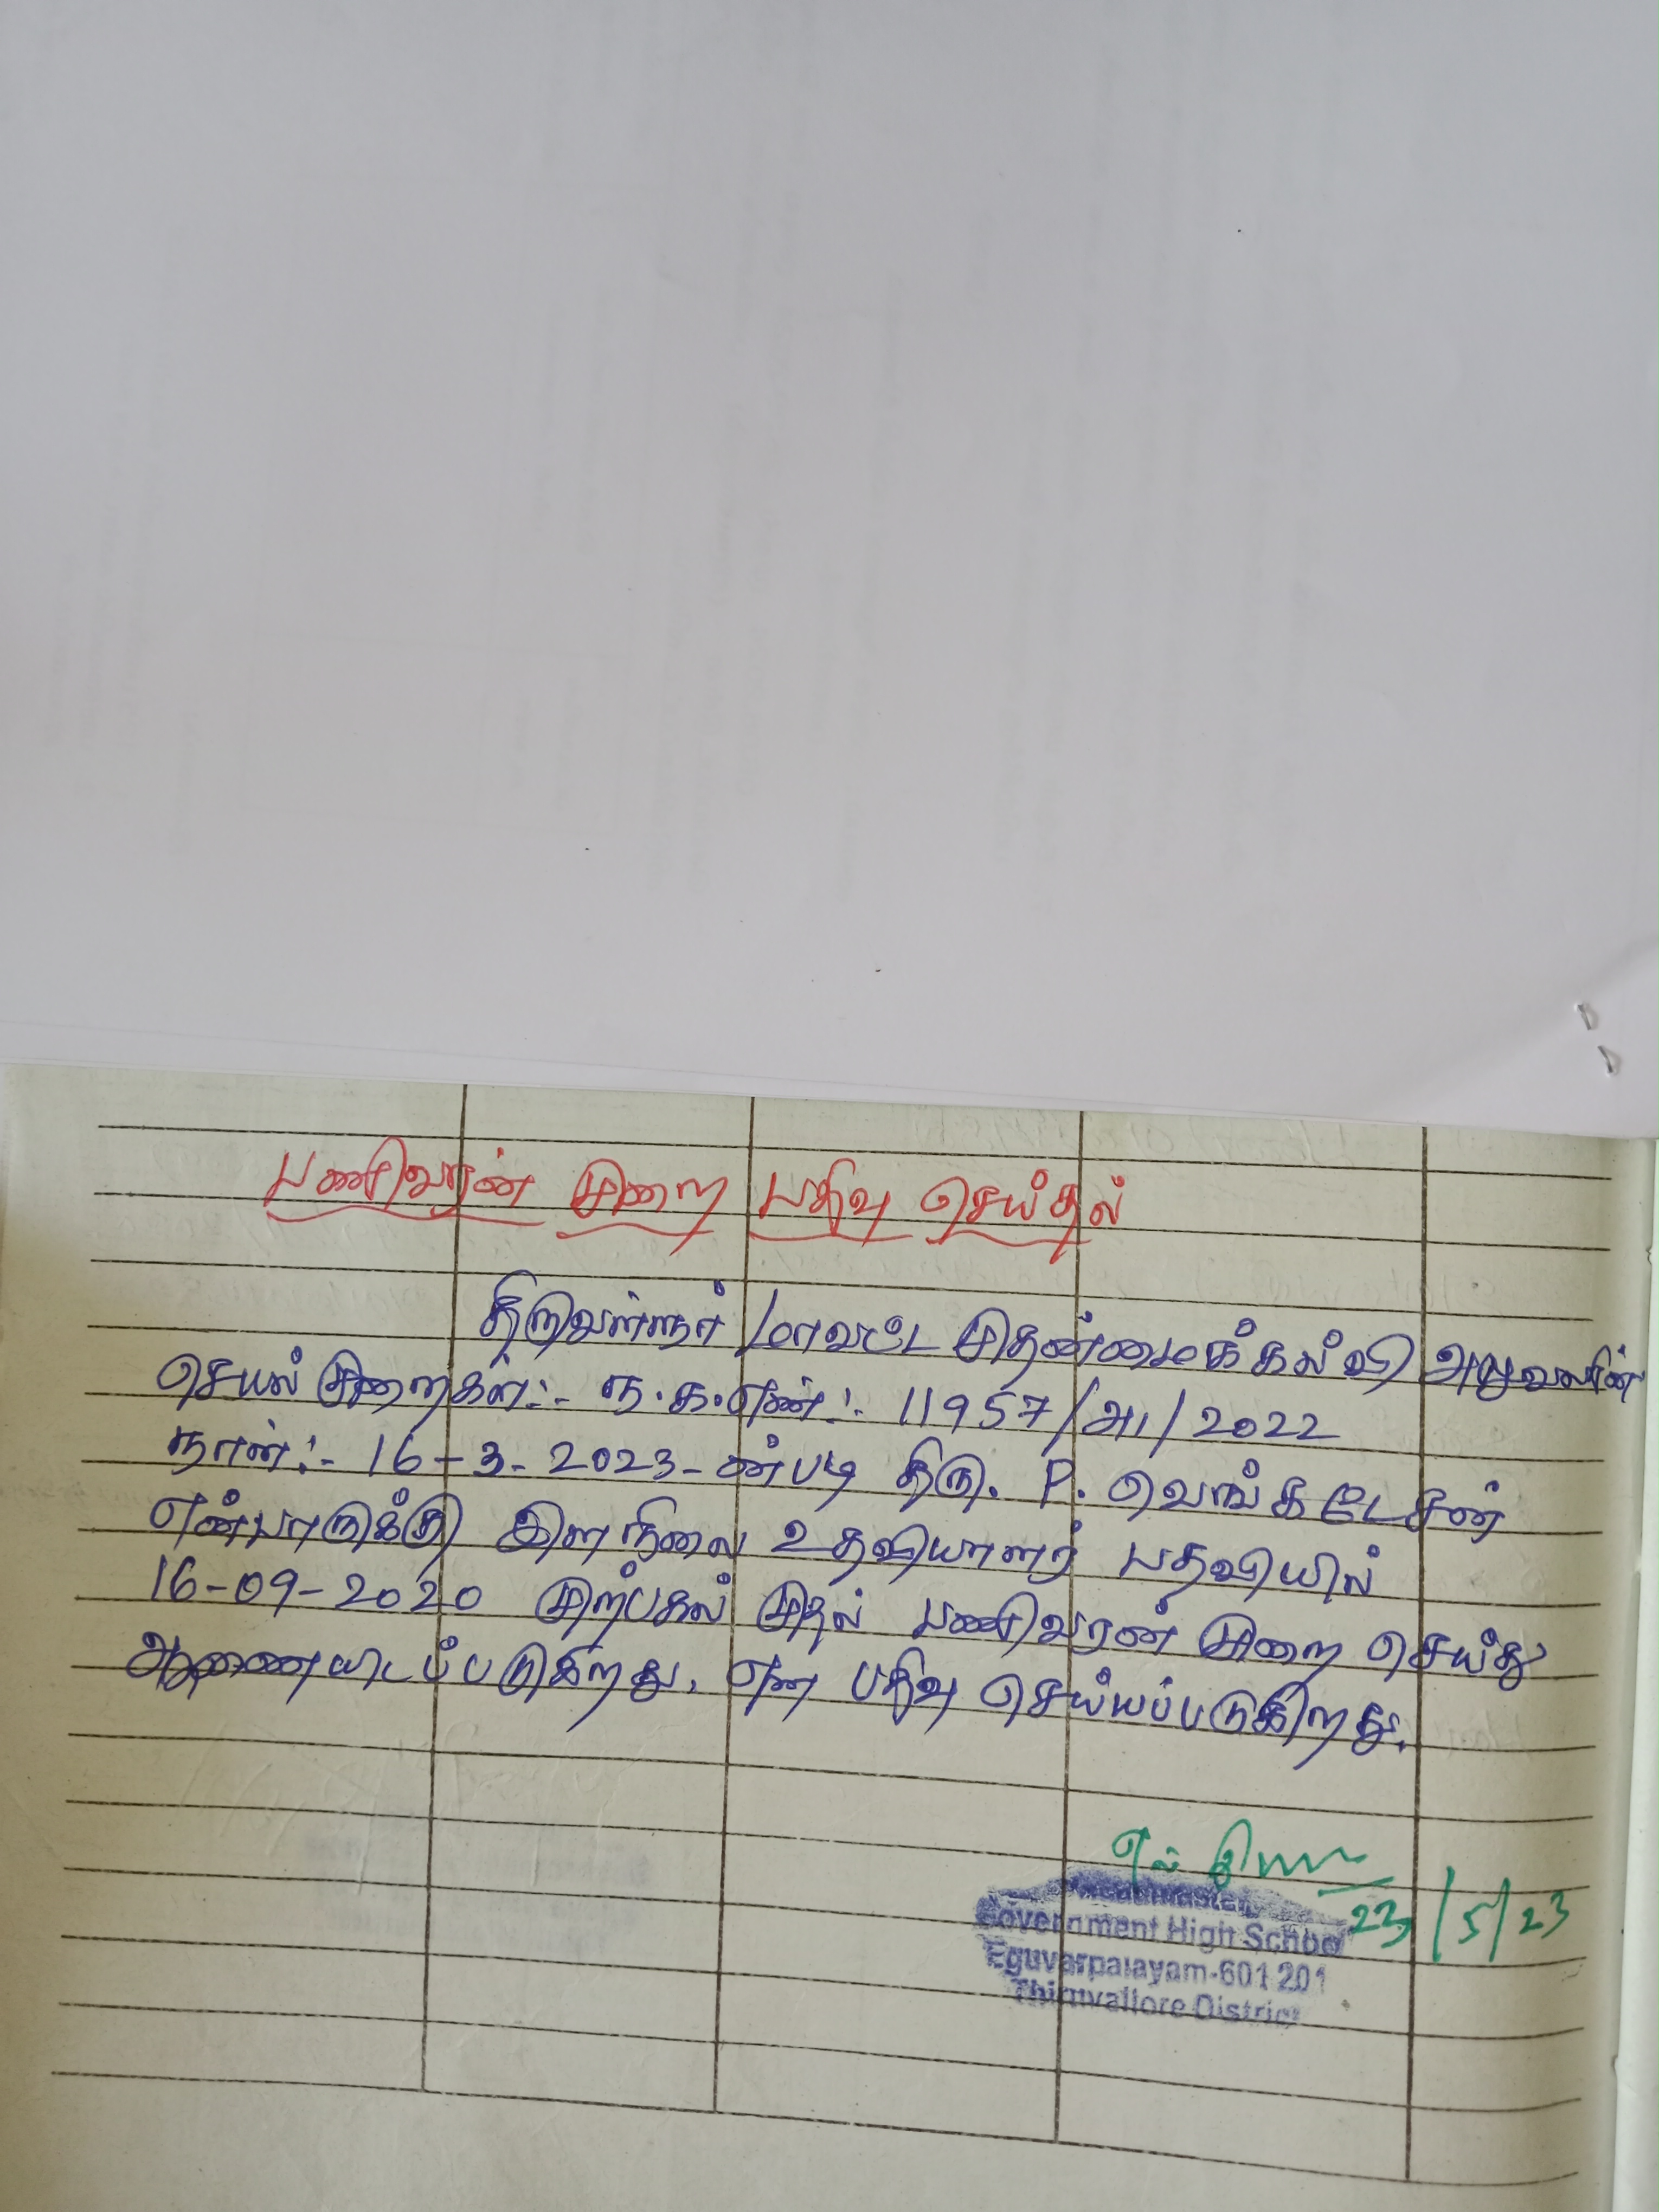 பணிவரன் முறை பதிவு செய்தல்
திருவள்ளூர் மாவட்ட முதன்மைக்கல்வி அலுவலரின்
செயல் முறைகள்:- ந.க.எண்:- 11957/அ1/2022
நாள்:- 16-3-2023-ன்படி திரு. P. வெங்கடேசன்
என்பாருக்கு இளநிலை உதவியாளர் பதவியில்
16-09-2020 முற்பகல் முதல் பணிவரன் முறை செய்து
ஆணையிடப்படுகிறது. என பதிவு செய்யப்படுகிறது.
22/5/23
Headmaster,
Government High School
Eguvarpalayam-601 201
Thiruvallore District